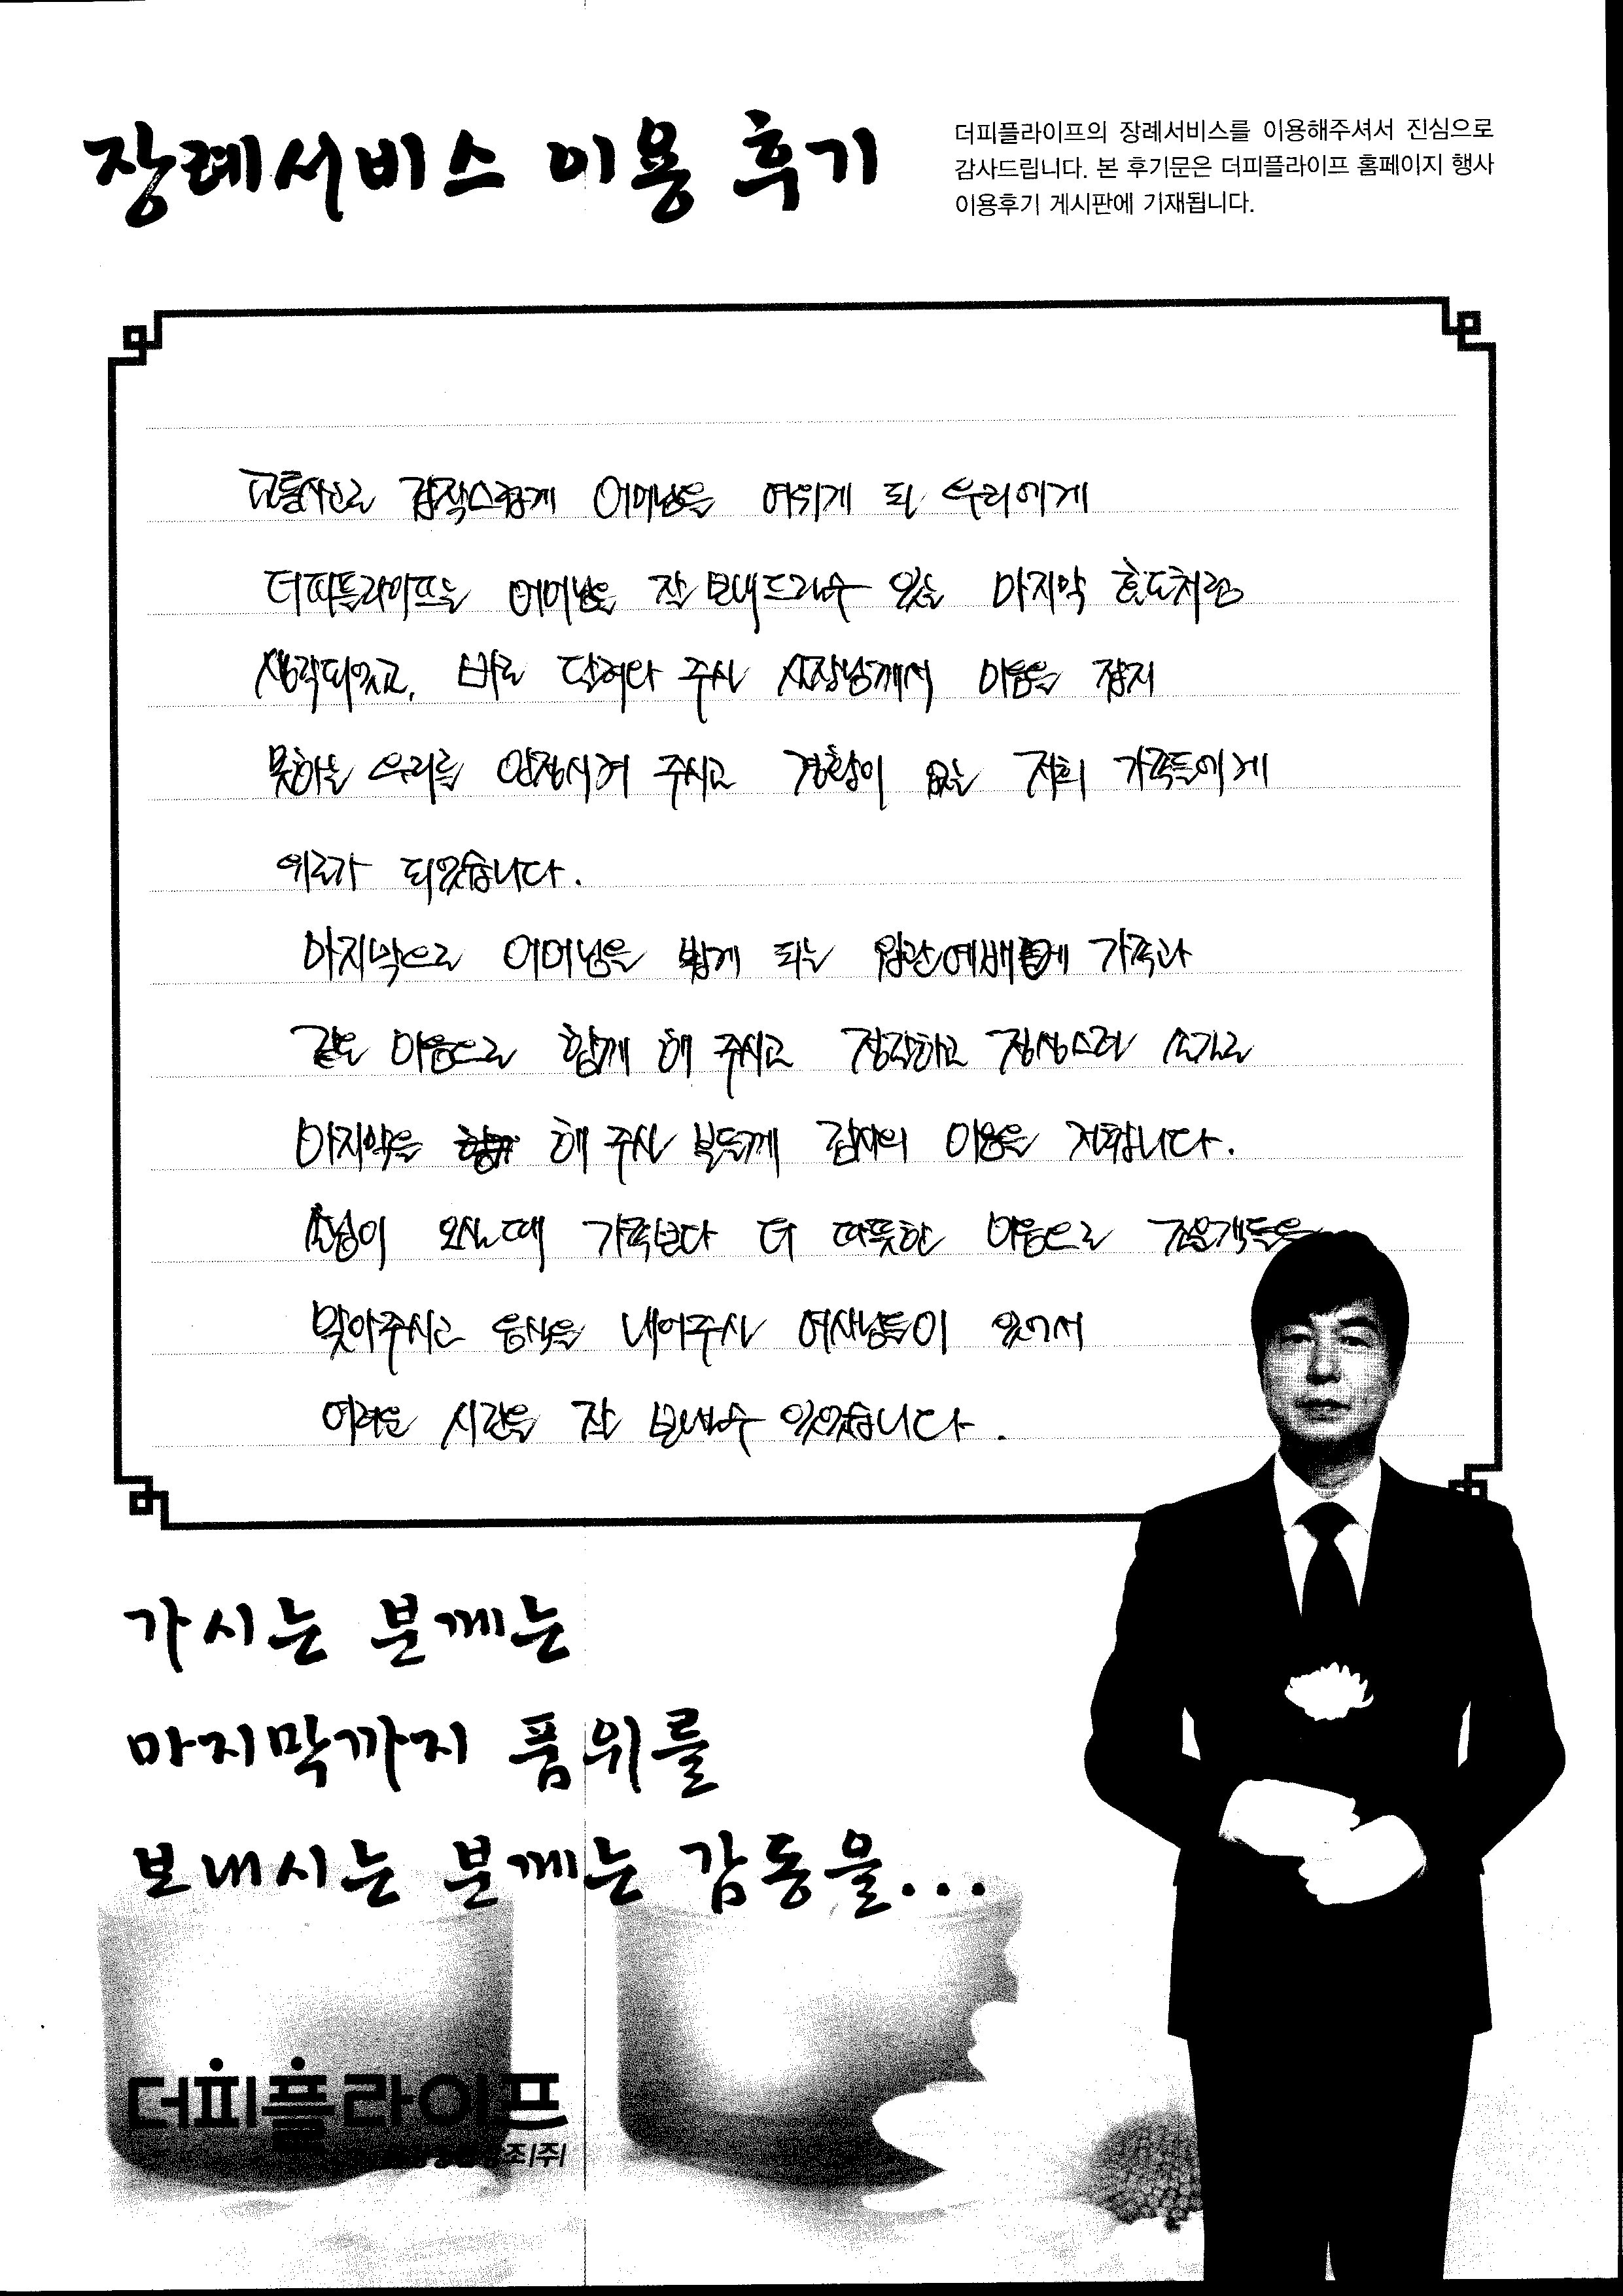 장례서비스 이용 후기
더피플라이프의 장례서비스를 이용해주셔서 진심으로
감사드립니다. 본 후기문은 더피플라이프 홈페이지 행사
이용후기 게시판에 기재됩니다.
교통사고로 갑작스럽게 어머님을 여위게 된 우리에게
더피플라이프는 어머님을 잘 보내드릴수 있는 마지막 효도처럼
생각되었고, 바로 달려와 주신 실장님께서 마음을 잡지
못하는 우리를 안정시켜 주시고 경황이 없는 저희 가족들에게
위로가 되었습니다.
마지막으로 어머님을 뵙게 되는 입관예배때에 가족과
같은 마음으로 함께 해 주시고 정갈하고 정성스런 손길로
마지막을 해 주신 분들께 감사의 마음을 전합니다.
손님이 오실때 가족보다 더 따뜻한 마음으로 조문객들을
맞아주시고 음식을 내어주신 여사님들이 있어서
어려운 시간을 잘 보낼수 있었습니다.
가시는 분께는
마지막까지 품위를
보내시는 분께는 감동을...
더피플라이프